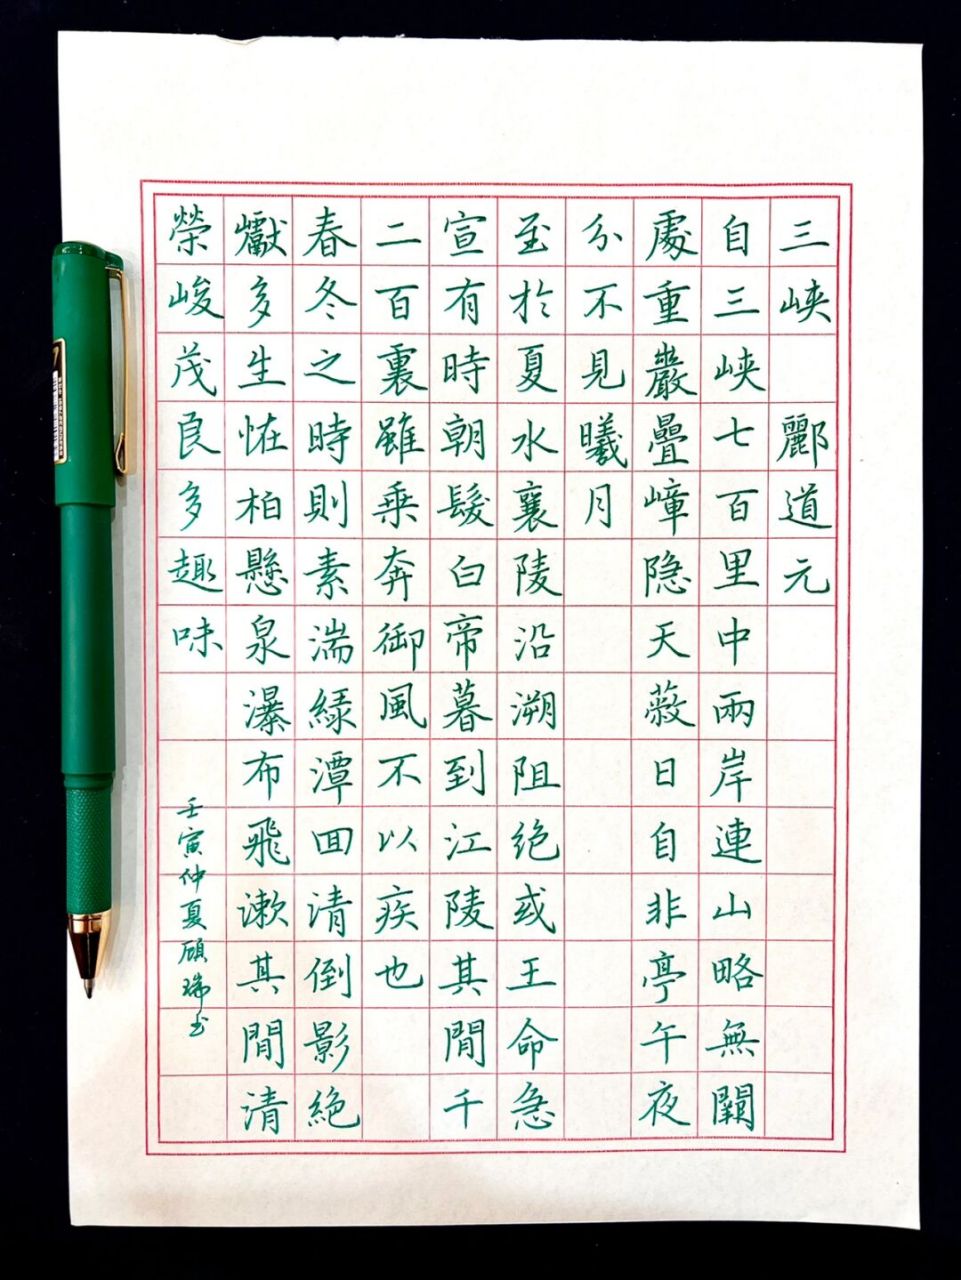 三峡 酈道元
自三峡七百里中兩岸連山略無闕
處重巖疊嶂隐天蔽日自非亭午夜
分不見曦月
至於夏水襄陵沿溯阻绝或王命急
宣有時朝發白帝暮到江陵其間千
二百裏雖乘奔御風不以疾也
春冬之時則素湍緑潭回清倒影絶
巘多生怪柏懸泉瀑布飛漱其間清
榮峻茂良多趣味
壬寅仲夏顾瑞书